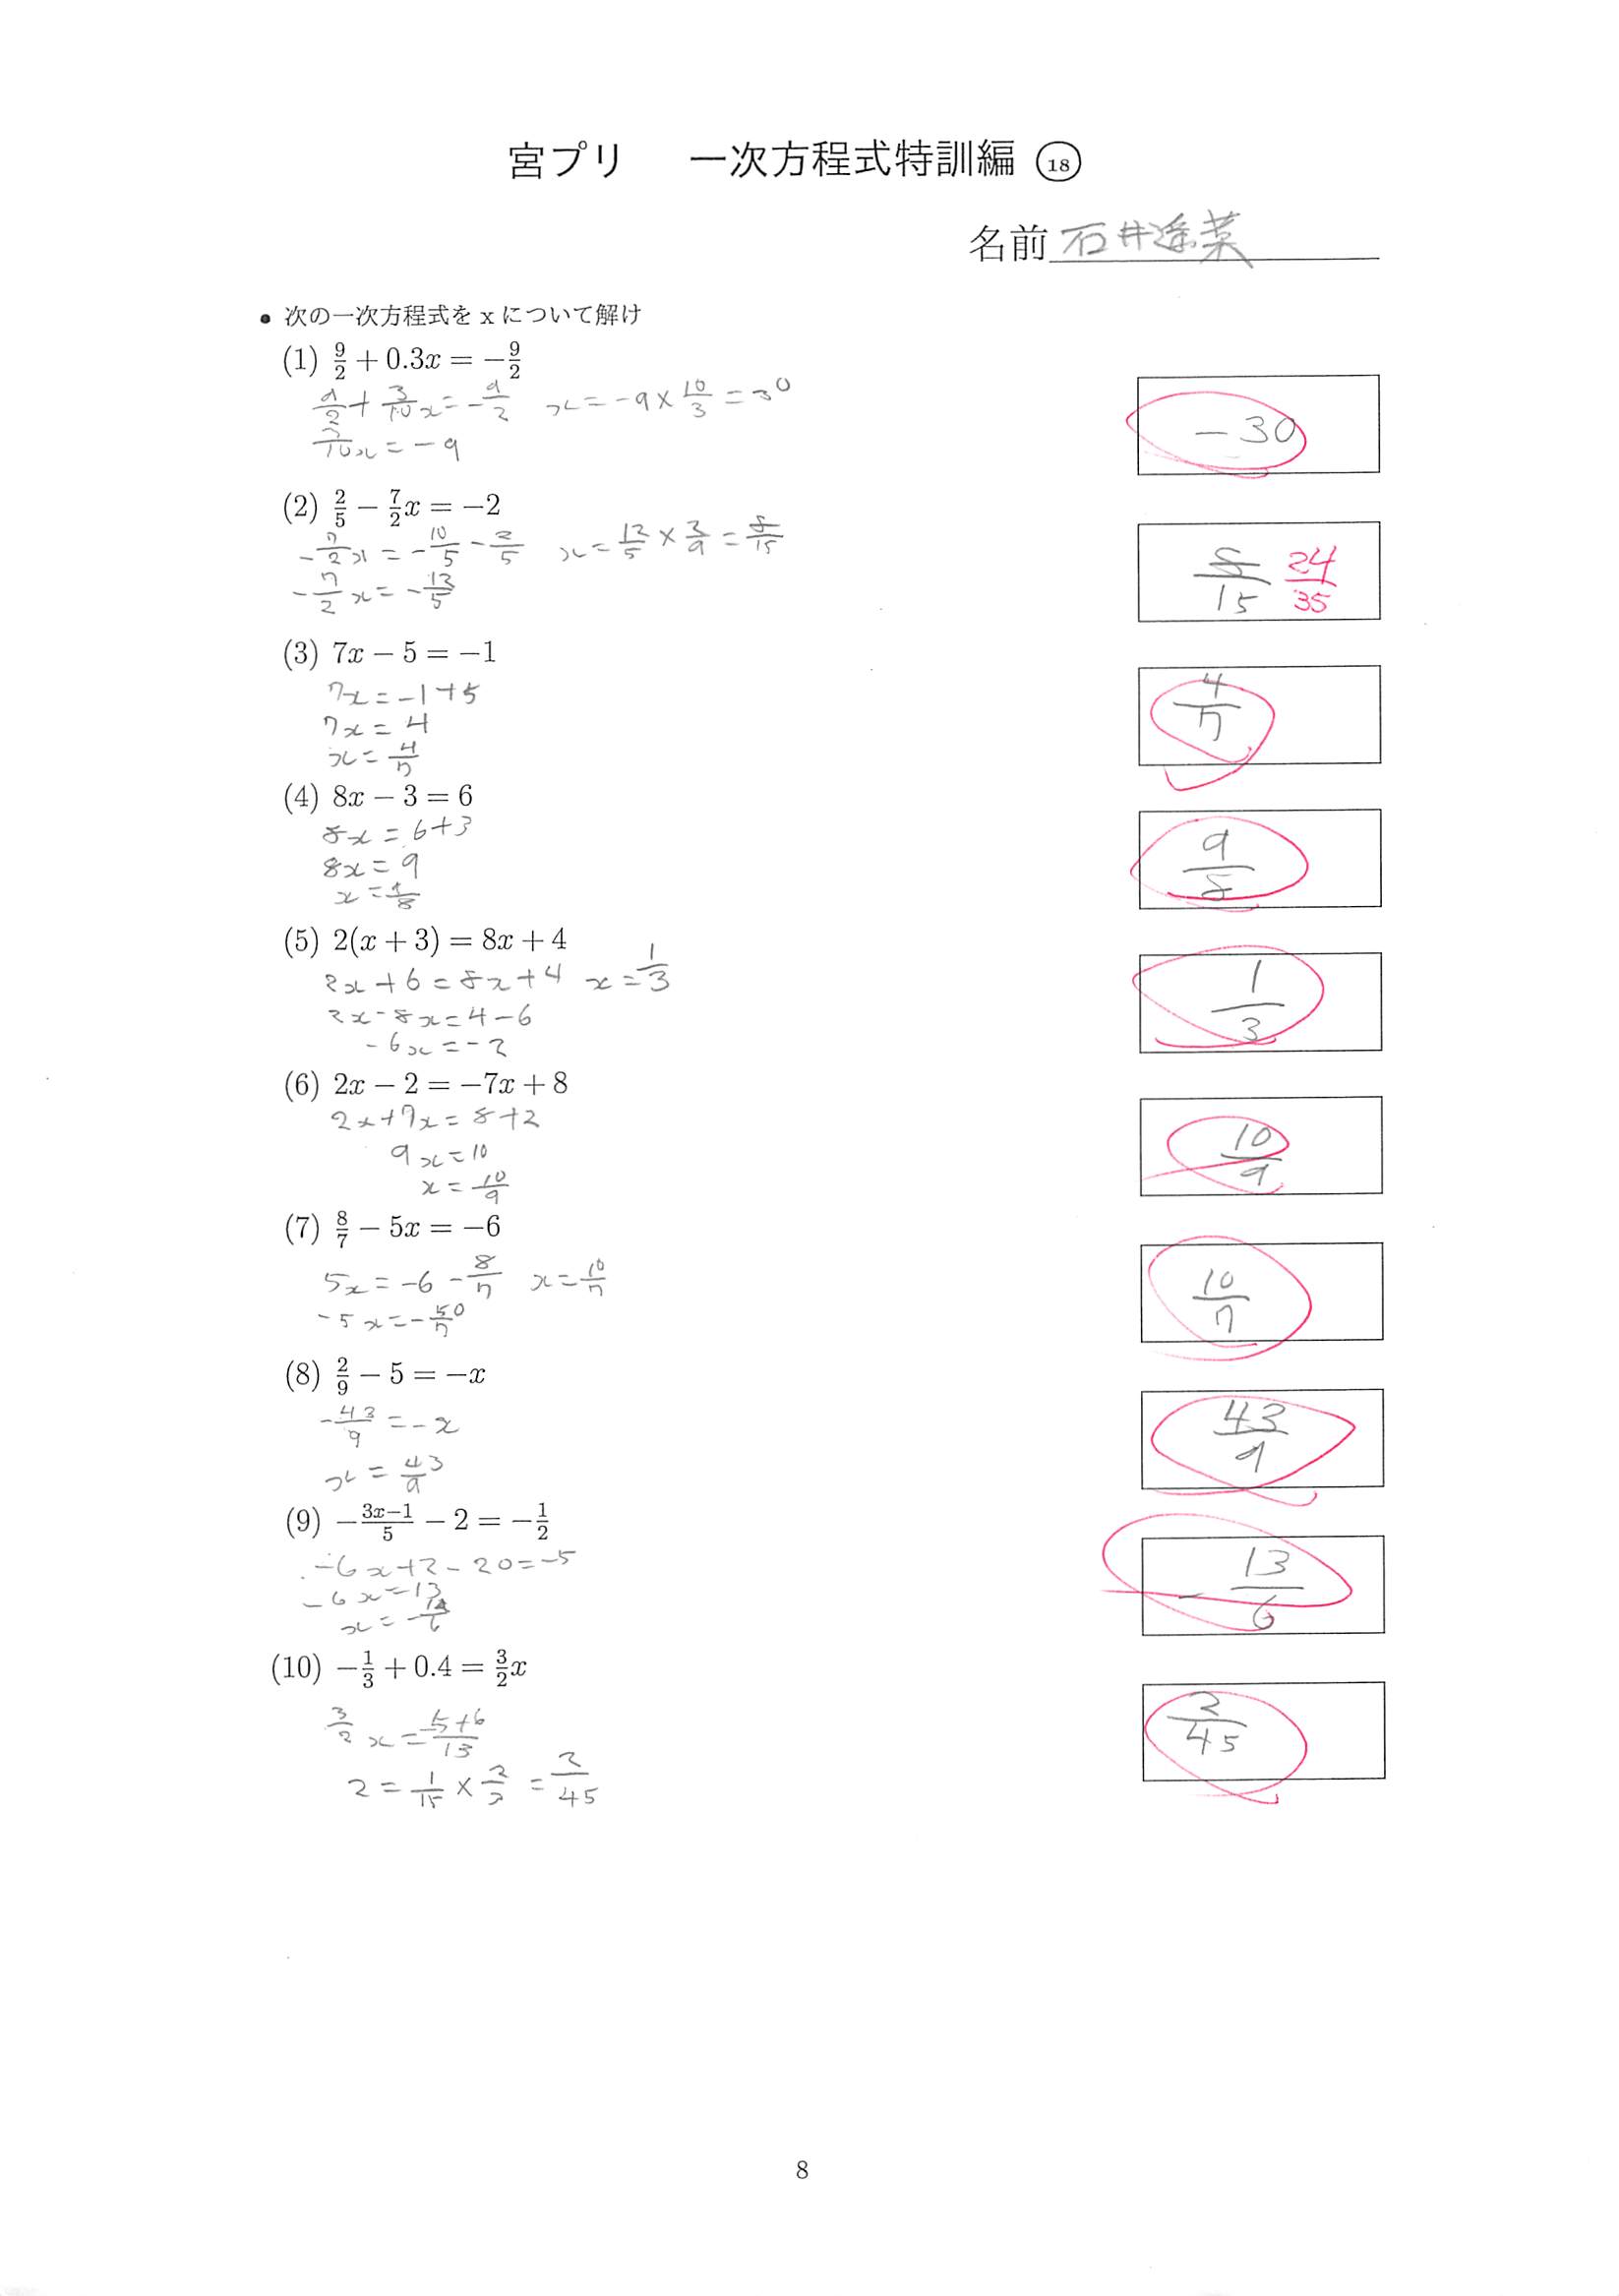 宮プリ 一次方程式特訓編 ⑱
名前 石井遥菜
• 次の一次方程式を x について解け
(1) 9/2 + 0.3x = −9/2
9/2 + 3/10 x = −9/2 x = −9 × 10/3 = 30
3/10 x = −9
−30
(2) 2/5 − 7/2 x = −2
−7/2 x = −10/5 − 2/5 x = 12/5 × 2/9 = 8/15
−7/2 x = −12/5
8/15 24/35
(3) 7x − 5 = −1
7x = −1+5
7x = 4
x = 4/7
4/7
(4) 8x − 3 = 6
8x = 6+3
8x = 9
x = 9/8
9/8
(5) 2(x + 3) = 8x + 4
2x + 6 = 8x + 4 x = 1/3
2x − 8x = 4 − 6
−6x = −2
1/3
(6) 2x − 2 = −7x + 8
2x+7x = 8+2
9x = 10
x = 10/9
10/9
(7) 8/7 − 5x = −6
5x = −6 − 8/7 x = 10/7
−5x = −50/7
10/7
(8) 2/9 − 5 = −x
−43/9 = −x
x = 43/9
43/9
(9) −(3x−1)/5 − 2 = −1/2
−6x+2−20 = −5
−6x = 13
x = −13/6
−13/6
(10) −1/3 + 0.4 = 3/2 x
3/2 x = (−5+6)/15
x = 1/15 × 2/3 = 2/45
2/45
8